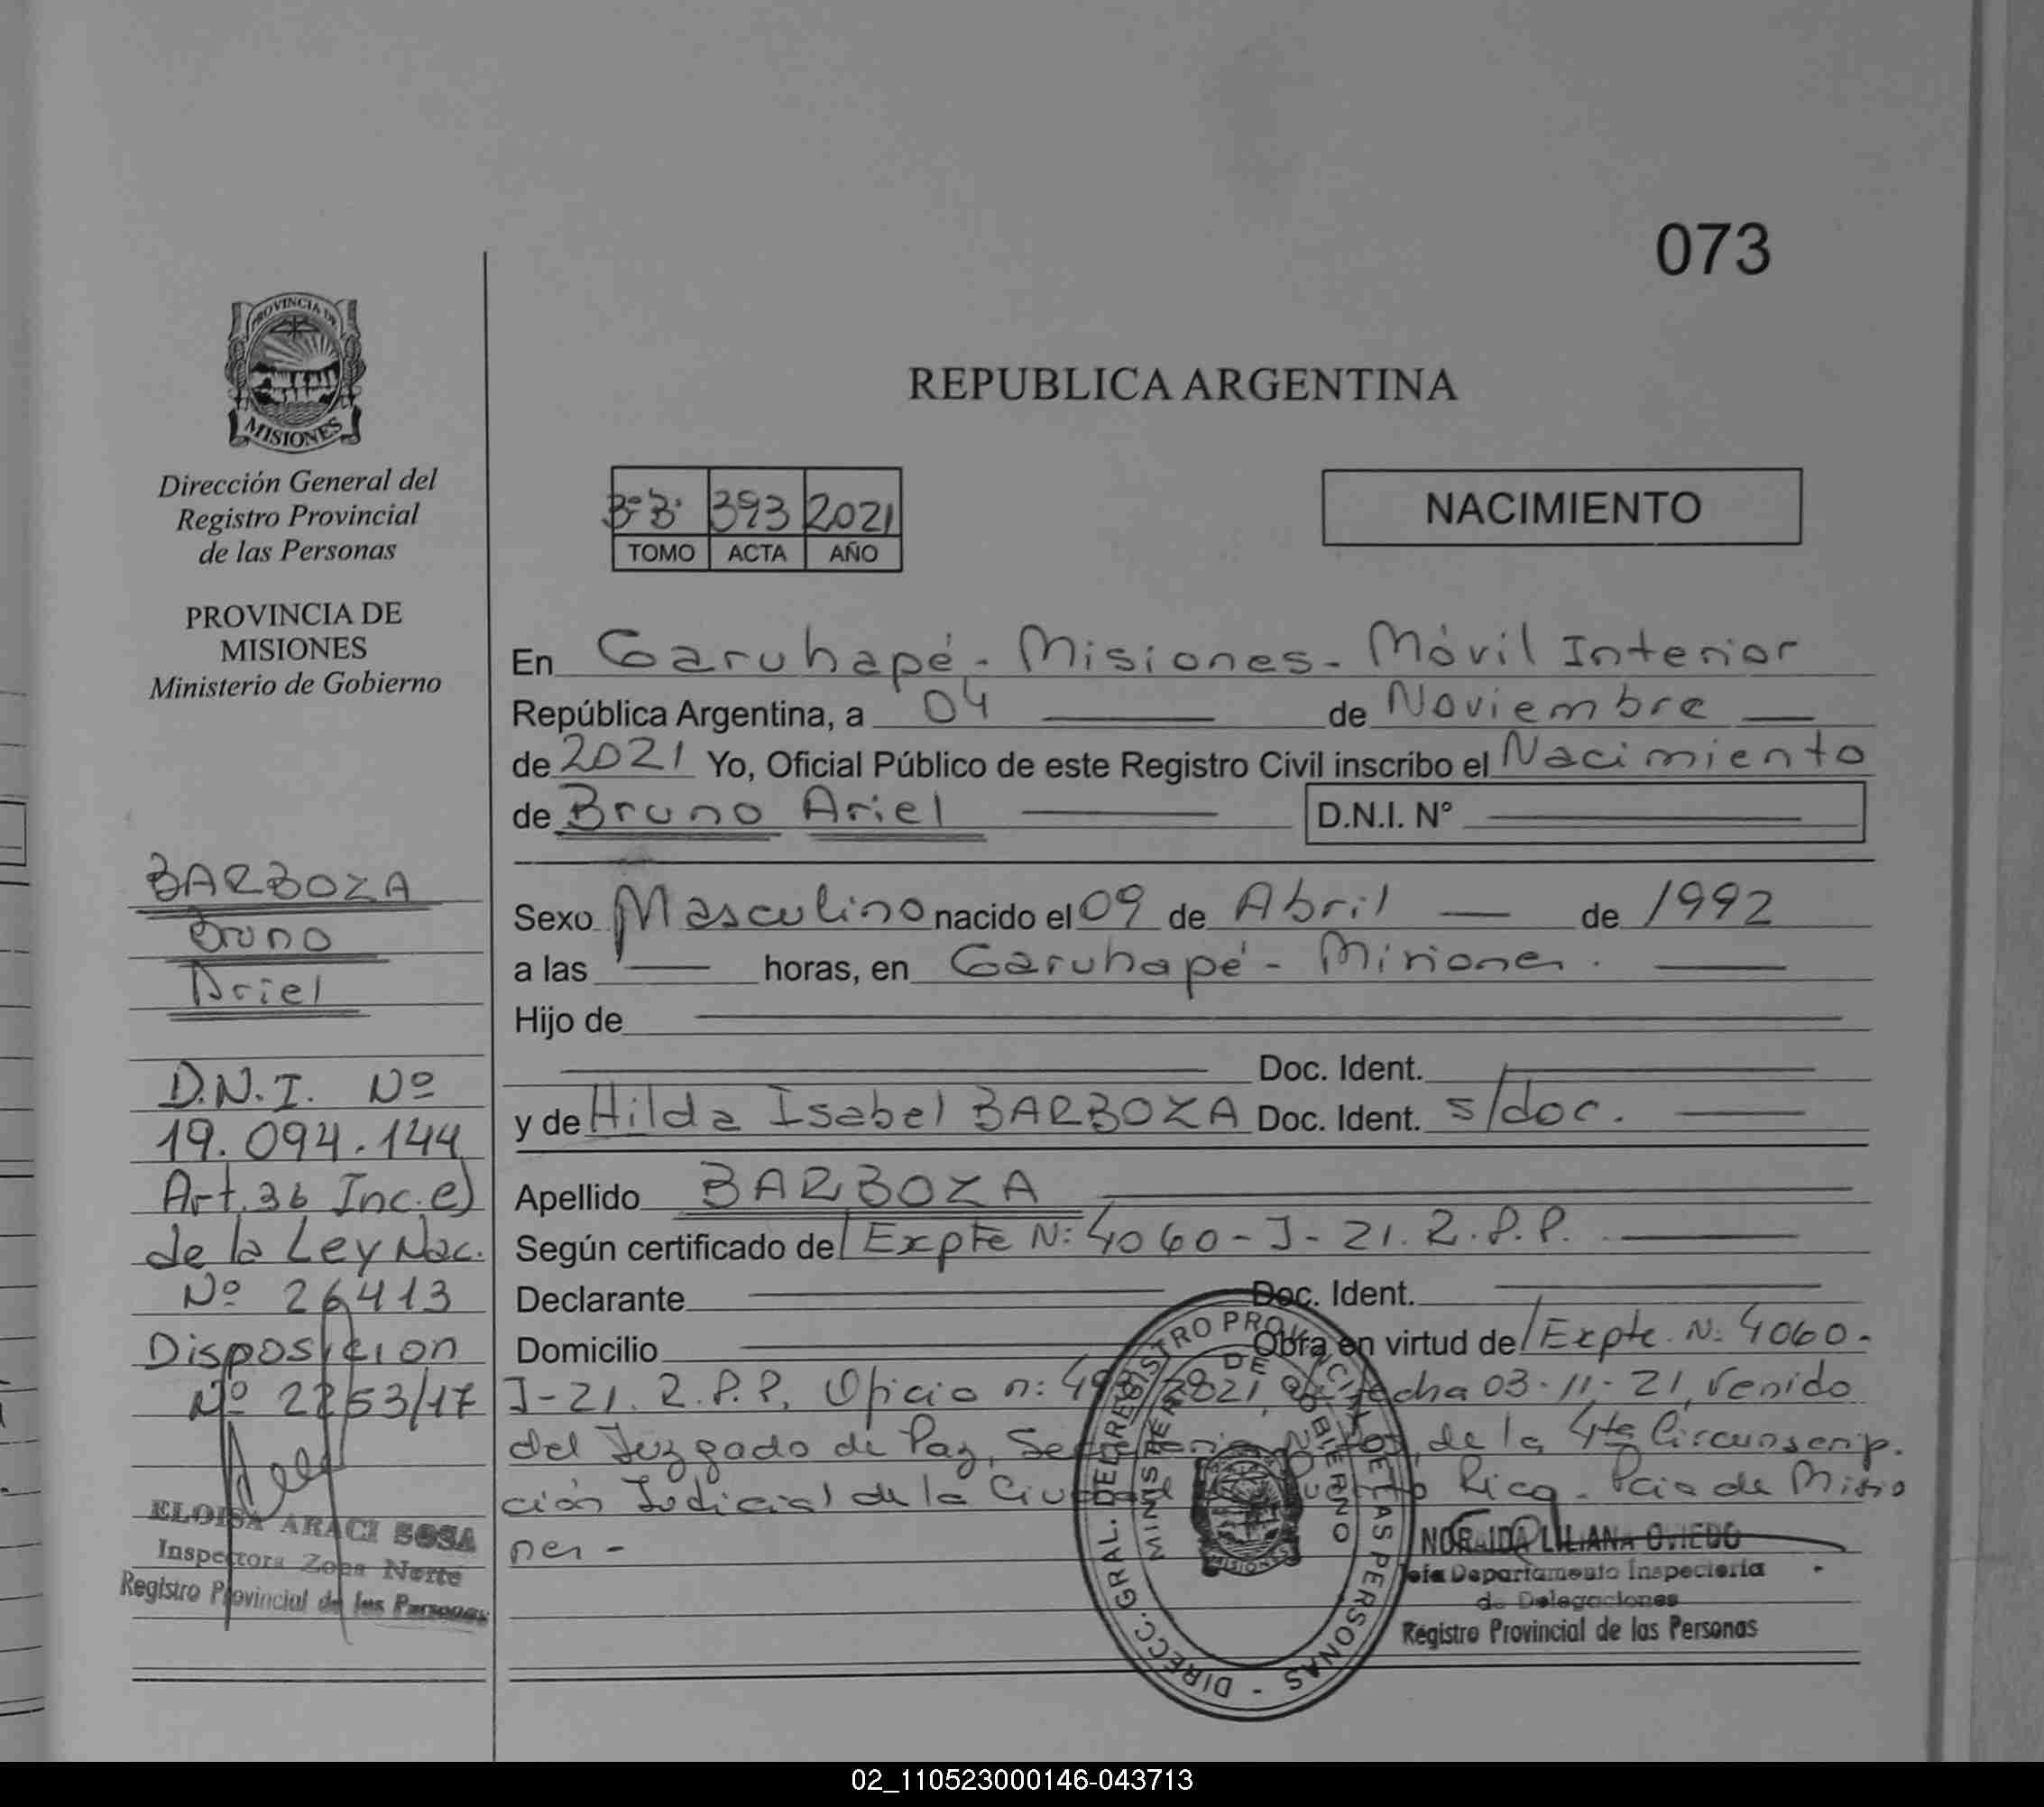 073
PROVINCIA DE
MISIONES
Dirección General del
Registro Provincial
de las Personas
PROVINCIA DE
MISIONES
Ministerio de Gobierno
BARBOZA
Bruno
Ariel
D.N.I. Nº
19.094.144
Art. 36 Inc. e)
de la Ley Nac.
Nº 26413
Disposicion
Nº 2253/17
ELOISA ARACI SOSA
Inspectora Zona Norte
Registro Provincial de las Personas
REPUBLICA ARGENTINA
3º B. 393 2021
TOMO ACTA AÑO
NACIMIENTO
En Garuhapé - Misiones - Móvil Interior
República Argentina, a 04 de Noviembre
de 2021 Yo, Oficial Público de este Registro Civil inscribo el Nacimiento
de Bruno Ariel D.N.I. Nº
Sexo Masculino nacido el 09 de Abril de 1992
a las horas, en Garuhapé - Misiones.
Hijo de
Doc. Ident.
y de Hilda Isabel BARBOZA Doc. Ident. s/doc.
Apellido BARBOZA
Según certificado de / Expte N: 4060-J-21. R.P.P.
Declarante Doc. Ident.
Domicilio Obra en virtud de / Expte. N: 4060-
J-21. R.P.P. Oficio n: fecha 03-11-21, venido
del Juzgado de Paz, de la 4ta Circunscrip.
ción Judicial de la Ciudad Puerto Rico - Pcia de Misio
nes -
DIRECC. GRAL. DEL REGISTRO PROVINCIAL DE LAS PERSONAS -
MINISTERIO DE GOBIERNO
MISIONES
NORAIDA LILIANA OVIEDO
Jefa Departamento Inspectoria
de Delegaciones
Registro Provincial de las Personas
02_110523000146-043713